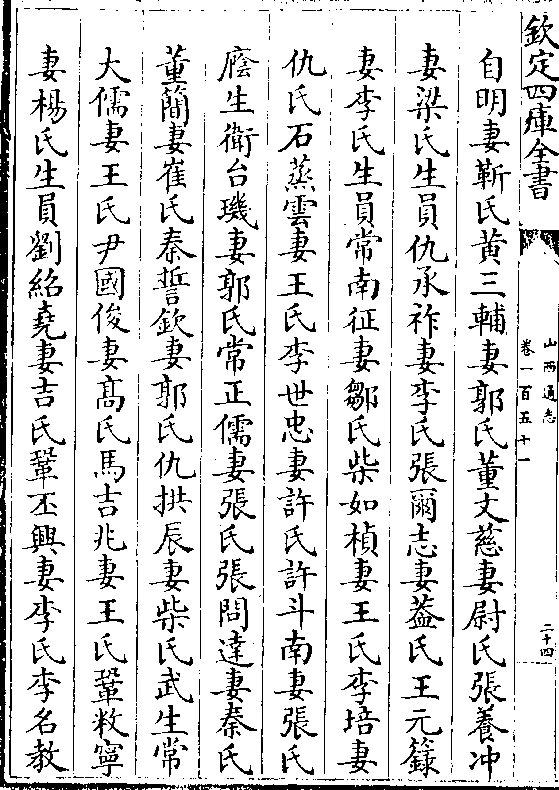 欽定四庫全書
山西通志
卷一百五十一
二十四
自明妻靳氏黃三輔妻郭氏董文慈妻尉氏張養冲
妻梁氏生員仇承祚妻李氏張爾志妻葢氏王元籙
妻李氏生員常南征妻鄒氏柴如楨妻王氏李培妻
仇氏石蒸雲妻王氏李世忠妻許氏許斗南妻張氏
廕生衛台璣妻郭氏常正儒妻張氏張問達妻秦氏
董簡妻崔氏秦誓欽妻郭氏仇拱辰妻柴氏武生常
大儒妻王氏尹國俊妻髙氏馬吉兆妻王氏鞏敉寧
妻楊氏生員劉紹堯妻吉氏鞏丕興妻李氏李名教